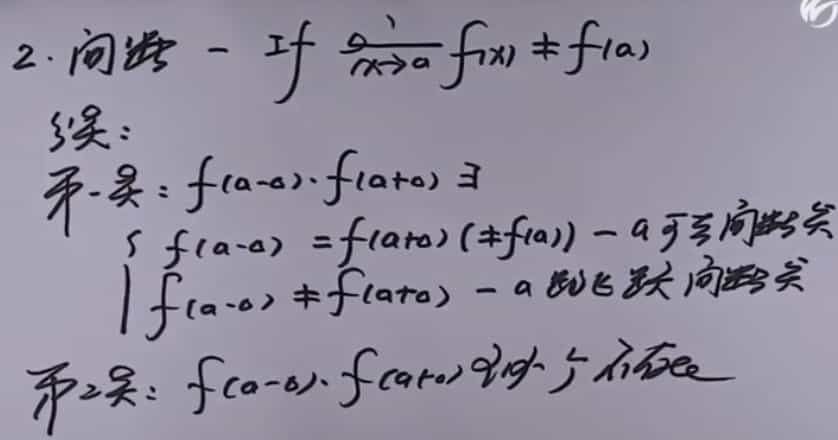 2. 间断 - If lim x→a f(x) ≠ f(a)
分类:
第一类: f(a-0), f(a+0) ∃
{ f(a-0) = f(a+0) (≠f(a)) - a 可去间断点
f(a-0) ≠ f(a+0) - a 跳跃间断点
第二类: f(a-0), f(a+0) 至少一个不存在